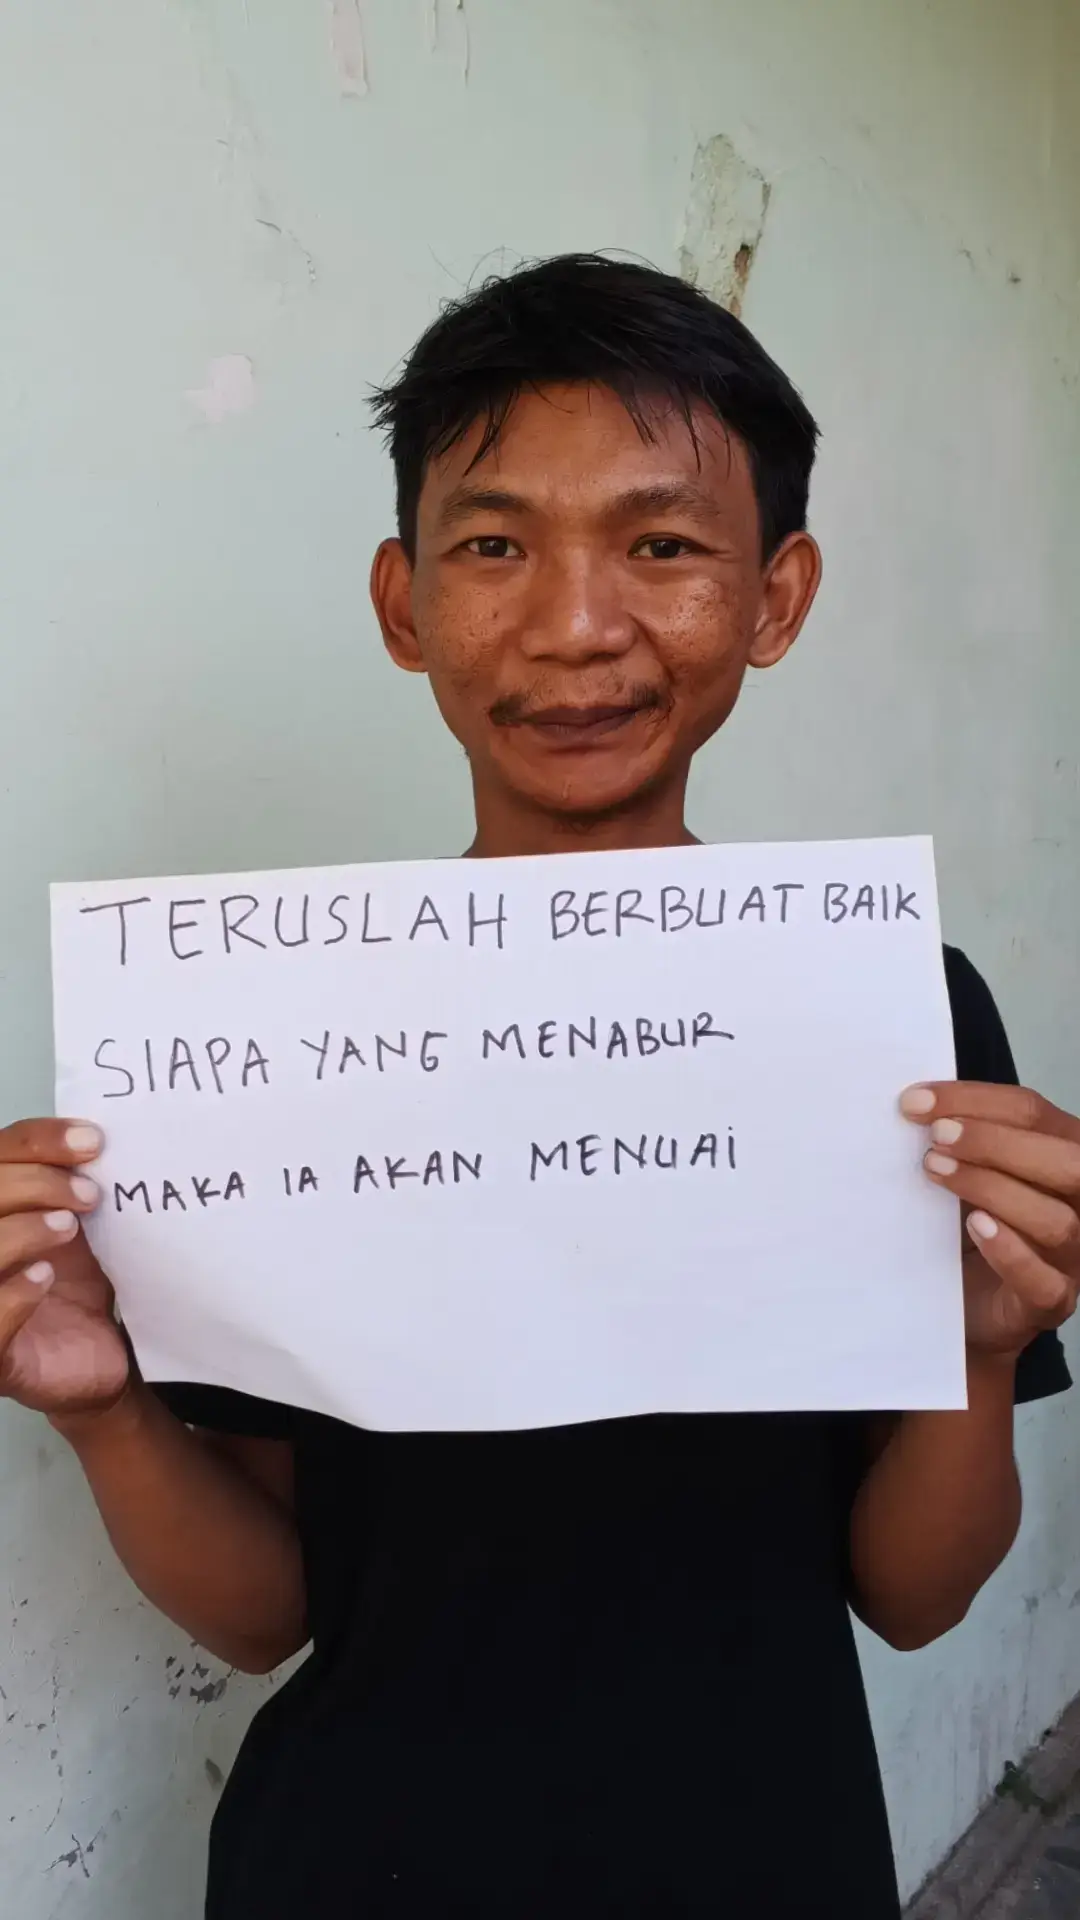 TERUSLAH BERBUAT BAIK
SIAPA YANG MENABUR
MAKA IA AKAN MENUAi